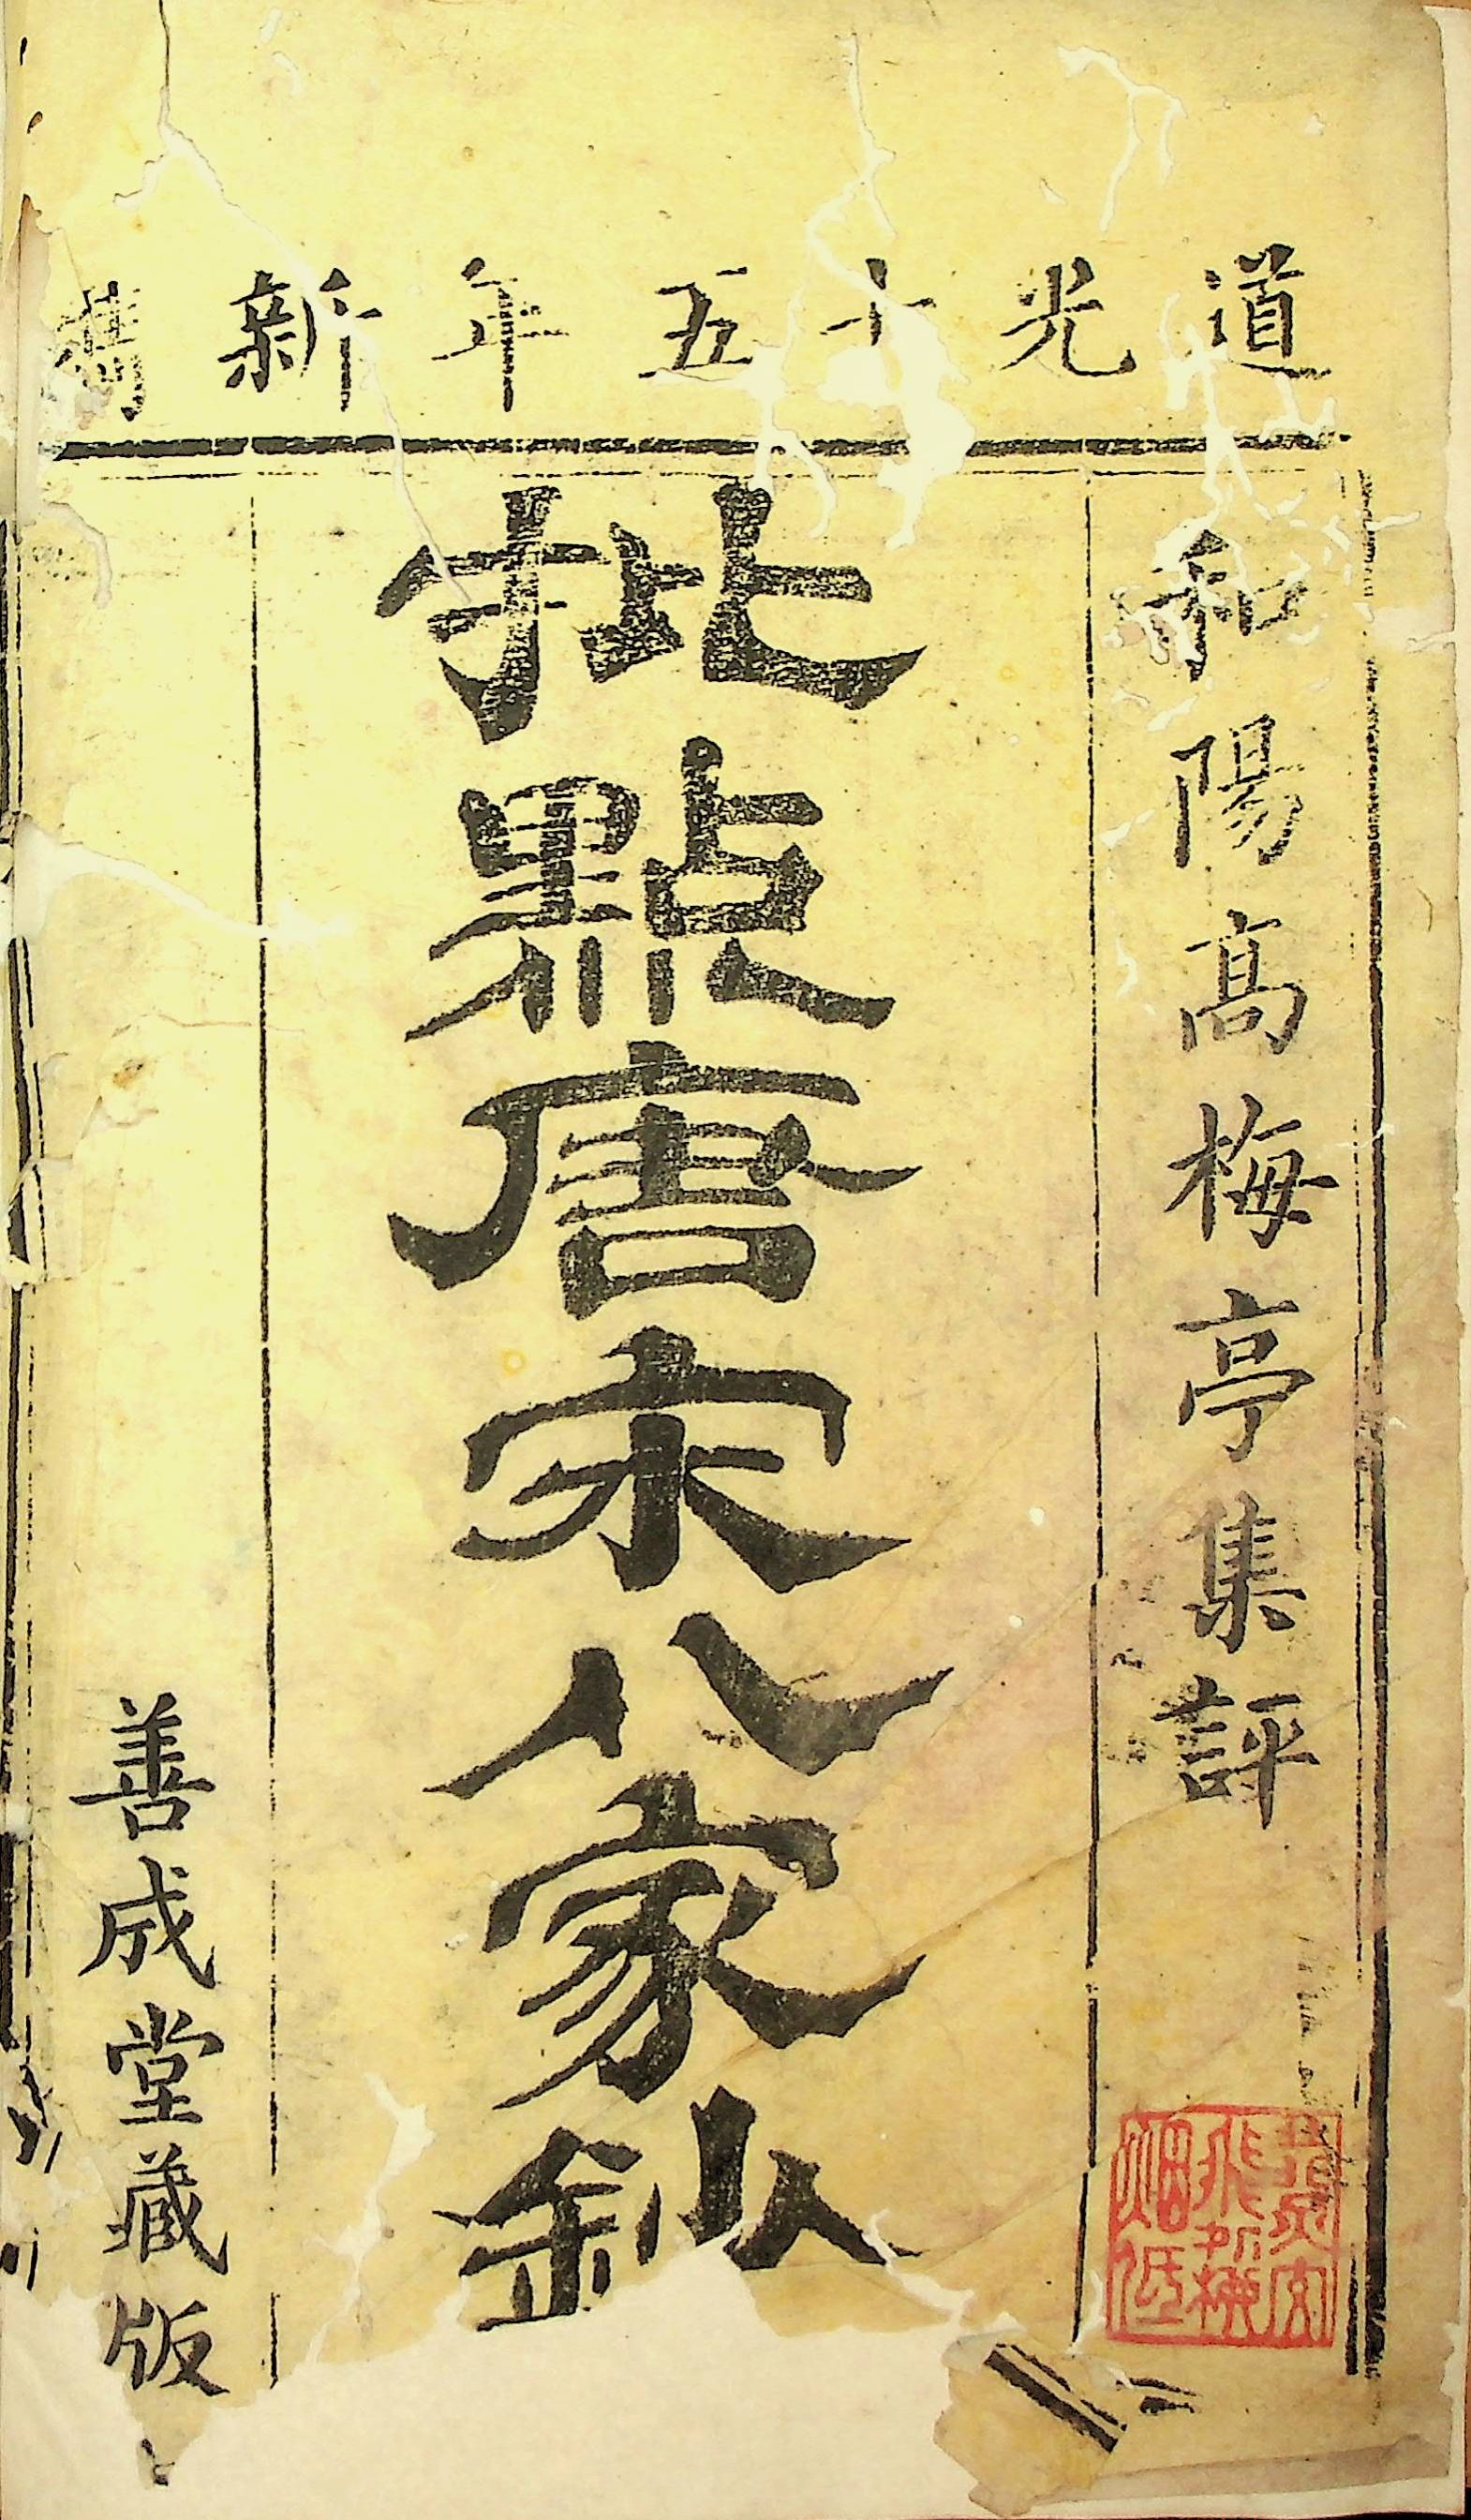 道光十五年新鐫
和陽高梅亭集評
批點唐宋八家鈔
善成堂藏版